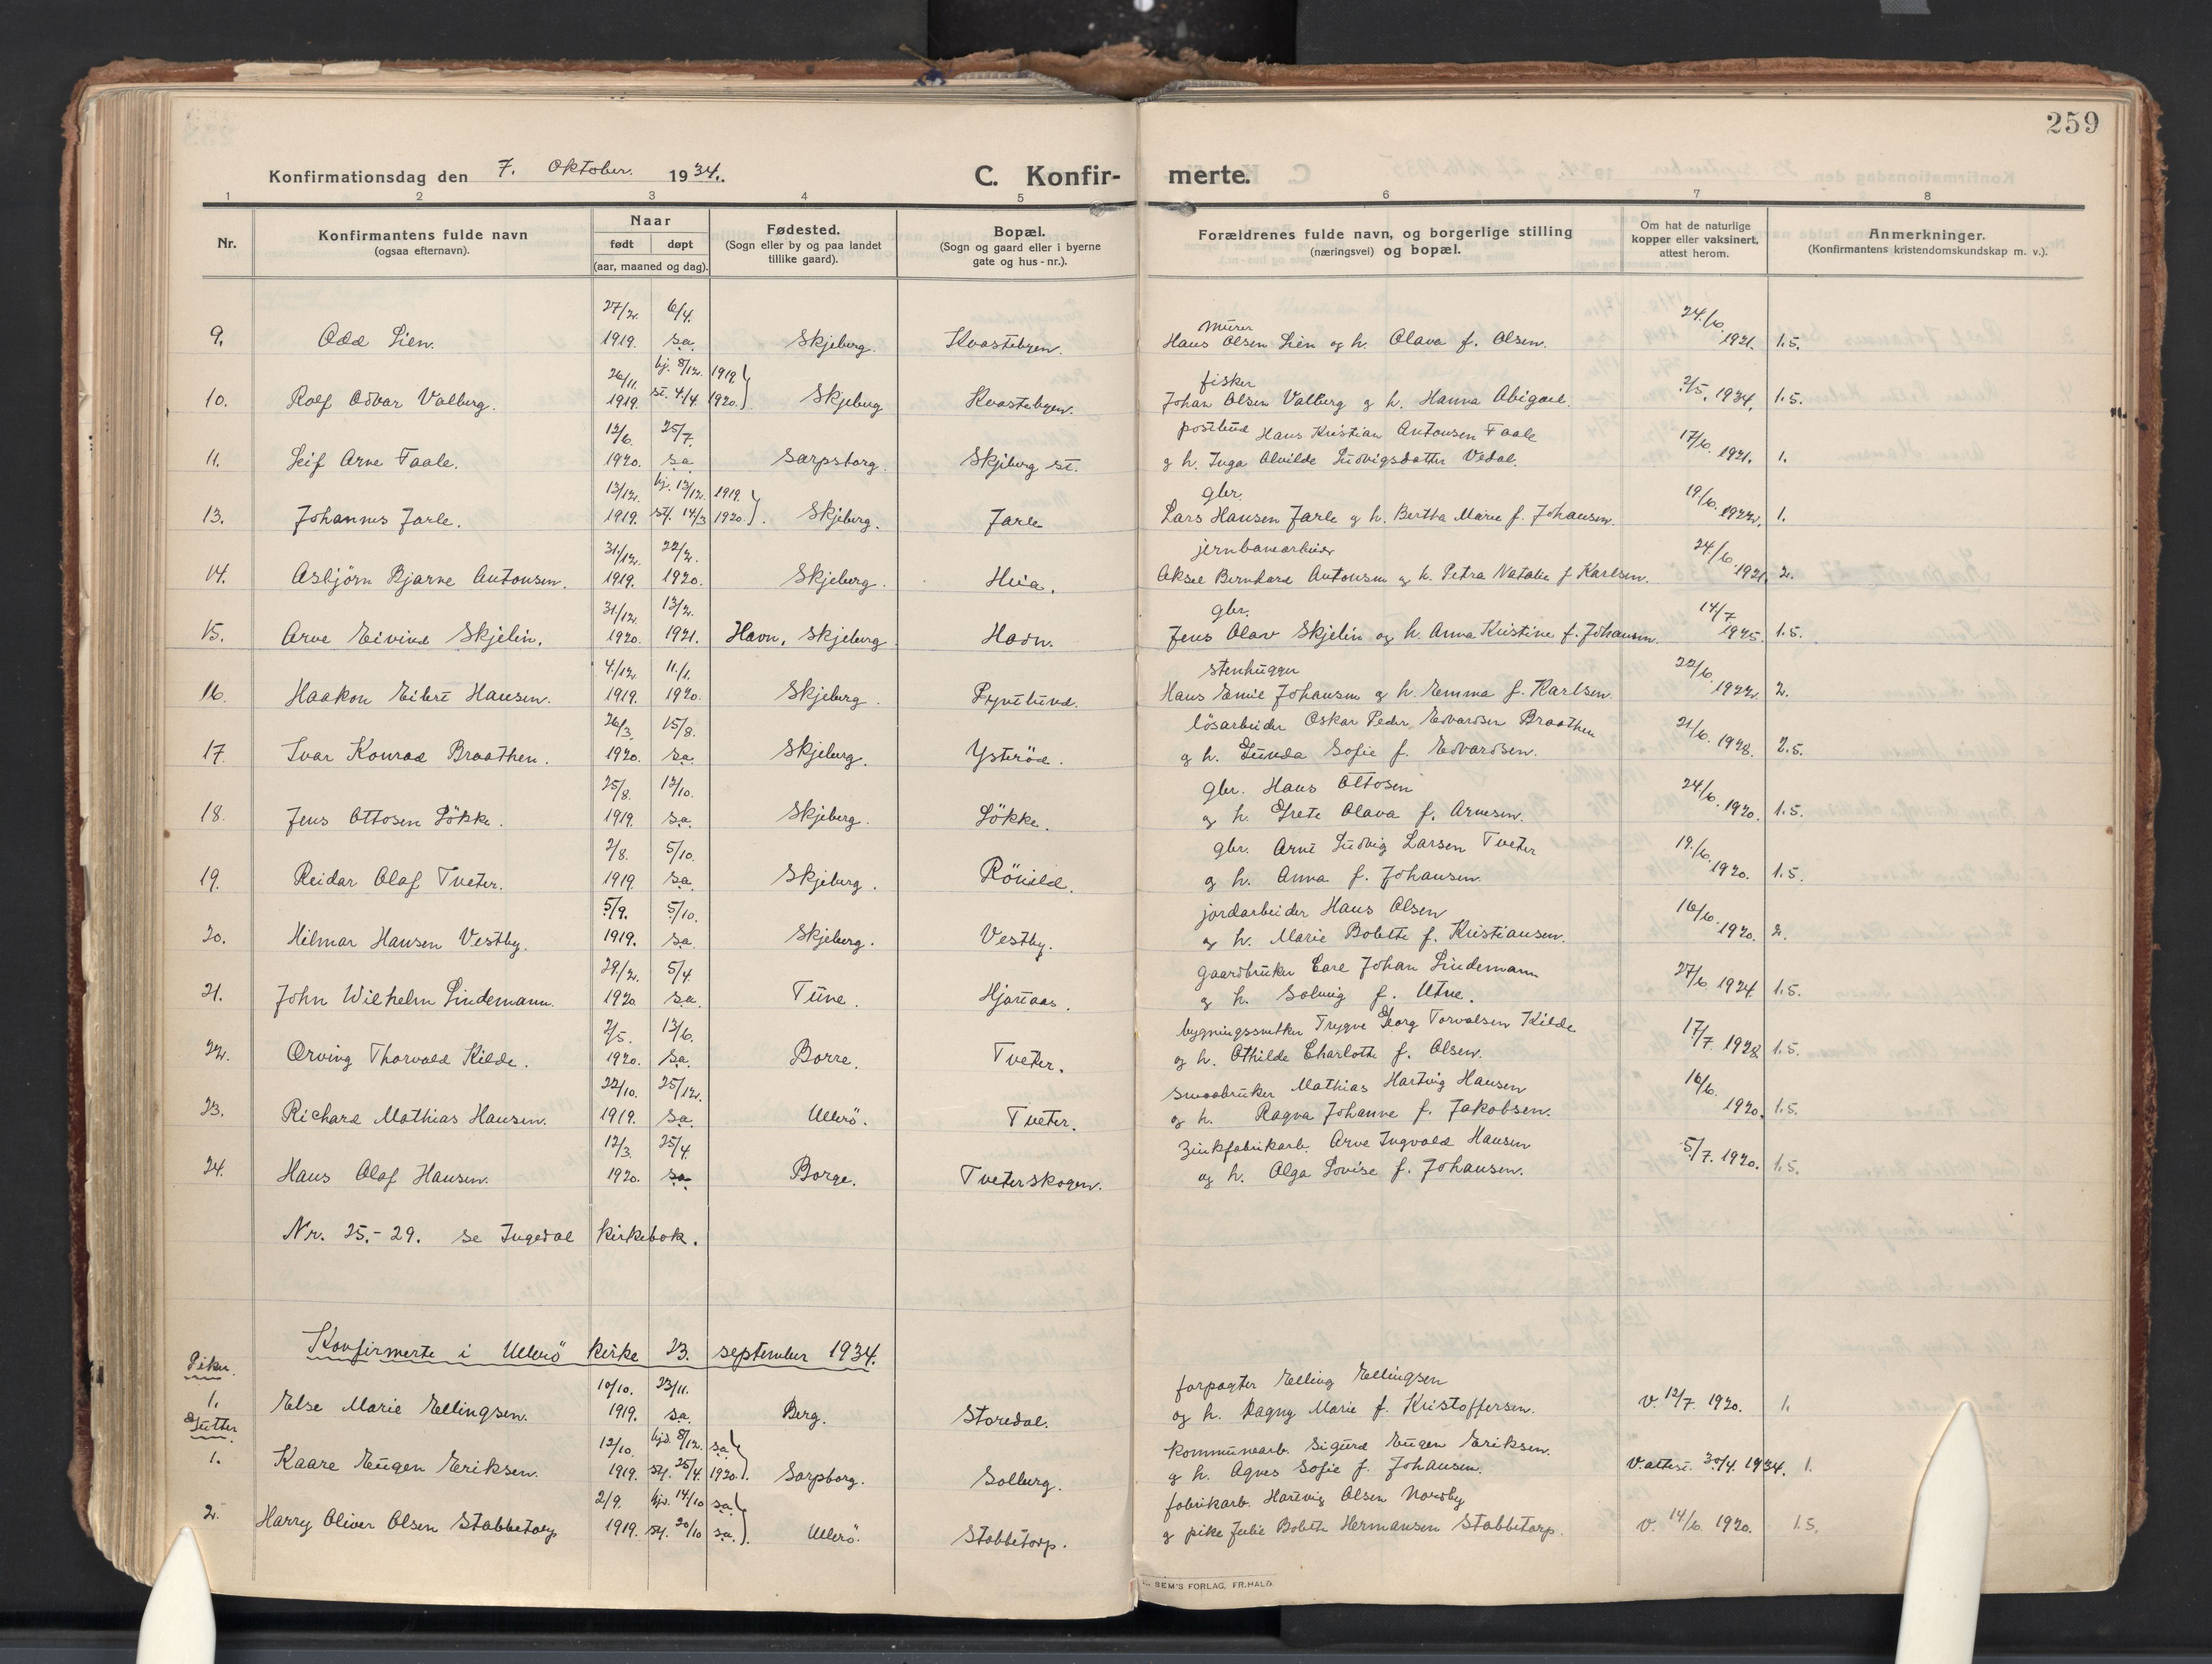 259
Konfirmationsdag den 7. Oktober. 1934. C. Konfir- merte.
1 2 3 4 5 6 7 8
Nr. Konfirmantens fulde navn (ogsaa efternavn). Naar født døpt (aar, maaned og dag). Fødested. (Sogn eller by og paa landet tillike gaard). Bopæl. (Sogn og gaard eller i byerne gate og hus-nr.). Forældrenes fulde navn, og borgerlige stilling (næringsvei) og bopæl. Om hat de naturlige kopper eller vaksinert, attest herom. Anmerkninger. (Konfirmantens kristendomskundskap m. v.).
27/2. 6/4. murer 24./6.
9. Odd Lien. 1919. s.a. Skjeberg. Kvastebyen. Hans Olsen Lien og h. Olava f. Olsen. 1921. 1.5.
26/11. hj. 8/12. 1919 fisker
10. Rolf Odvar Valberg. 1919. st. 4/4. 1920. Skjeberg Kvastebyen. Johan Olsen Valberg g h. Hanna Abigael. 2/5. 1934. 1.5.
12/6. 25/7. postbud Hans Kristian Antonsen Taale
11. Leif Arne Taale. 1920. s.a. Sarpsborg. Skjeberg st. g h. Inga Alvilde Ludvigsdatter Vedal. 17/6. 1921. 1.
13/12. hj. 13/12. 1919. gbr. 19/6.
13. Johannes Jarle. 1919. stf. 14/3 1920. Skjeberg. Jarle Lars Hansen Jarle g h. Bertha Marie f. Johansen. 1922. 1.
31/12. 22/2. jernbanearbeider 24./6.
14. Asbjörn Bjarne Antonsen. 1919. 1920. Skjeberg. Hvia. Aksel Bernhard Antonsen g h. Petra Natalie f Karlsen. 1921. 2.
31/12. 13/2. gbr. 14/7
15. Arve Eivind Skjelin. 1920. 1921. Havn, Skjeberg. Havn. Jens Olav Skjelin og h. Anna Kristine f. Johansen. 1925. 1.5.
4./12. 11./1. stenhugger 22/6.
16. Haakon Eilert Hansen. 1919. 1920. Skjeberg. Pyntelund. Hans Emil Johansen g h. Emma f. Karlsen. 1922. 2.
26/3. 15/8. lösarbeider Oskar Peder Edvardsen Braathen
17. Ivar Konrad Braathen. 1920. s.a. Skjeberg. Ysteröd. g h. Gunda Sofie f. Edvardsen. 21/6. 1928. 2.5.
25/8. 12/10. gbr. Hans Ottosen
18. Jens Ottosen Lökke. 1919. s.a. Skjeberg. Lökke. g h. Grete Olava f. Arnesen. 24/6. 1920. 1.5.
2/8. 5/10. gbr. Arnt Ludvig Larsen Tveter
19. Reidar Olaf Tveter. 1919. s.a. Skjeberg. Rönild. g h. Anna f. Johansen. 19./6. 1920. 1.5.
5/9. 5/10. jordarbeider Hans Olsen
20. Hilmar Hansen Vestby. 1919. s.a. Skjeberg. Vestby. g h. Marie Bolette f. Kristiansen. 16/6. 1920. 2.
29./2. 5/4. gaardbruker Carl Johan Lindemann
21. John Wilhelm Lindemann. 1920 s.a. Tune. Hjonaas. g h. Solveig f. Utne. 27/6 1924. 1.5.
2/5. 13/6. bygningssnekker Trygve Georg Torvalsen Kilde
22. Ørving Thorvald Kilde. 1920. s.a. Borre. Tveter. g h. Othilde Charlotte f. Olsen. 17/7. 1928. 1.5.
22/10. 25/12. smaabruker Mathias Hartvig Hansen
23. Richard Mathias Hansen. 1919. s.a. Ullerö. Tveter. g h. Ragna Johanne f. Jakobsen. 16/6. 1920. 1.5.
12/3. 25/4. Zinkfabrikarb. Arve Ingvald Hansen
24. Hans Olaf Hansen. 1920. s.a. Borge. Tveterskogen. og h. Olga Lovise f. Johansen. 5/7. 1920. 1.5.
Nr. 25.-29. se Ingedal kirkebok.
Konfirmerte i Ullerö kirke 23. september 1934.
Piker.
10/10. 23/11. forpagter Elling Ellingsen
1. Else Marie Ellingsen. 1919. s.a. Berg. Storedal. og h. Dagny Marie f. Kristoffersen. v. 12/7 1920. 1.
Gutter.
12/10. hjd. 8/12. sa. kommunearb. Sigurd Eugen Eriksen.
1. Kaare Eugen Eriksen. 1919. stf. 25/4. 1920. Sarpsborg. Solberg. g h. Agnes Sofie f. Johansen. v. attest. 30/4. 1934. 1.
2/9. hjd. 14/10 sa. fabrikarb. Hartvig Olsen Nordby
2. Harry Oliver Olsen Stabbetorp 1919. stf. 20/10 s.a. Ullerö. Stabbetorp. g pike Julie Bolette Hermansen Stabbetorp. v. 14/6. 1920. 1.5.
SEM'S FORLAG, FR.HALD